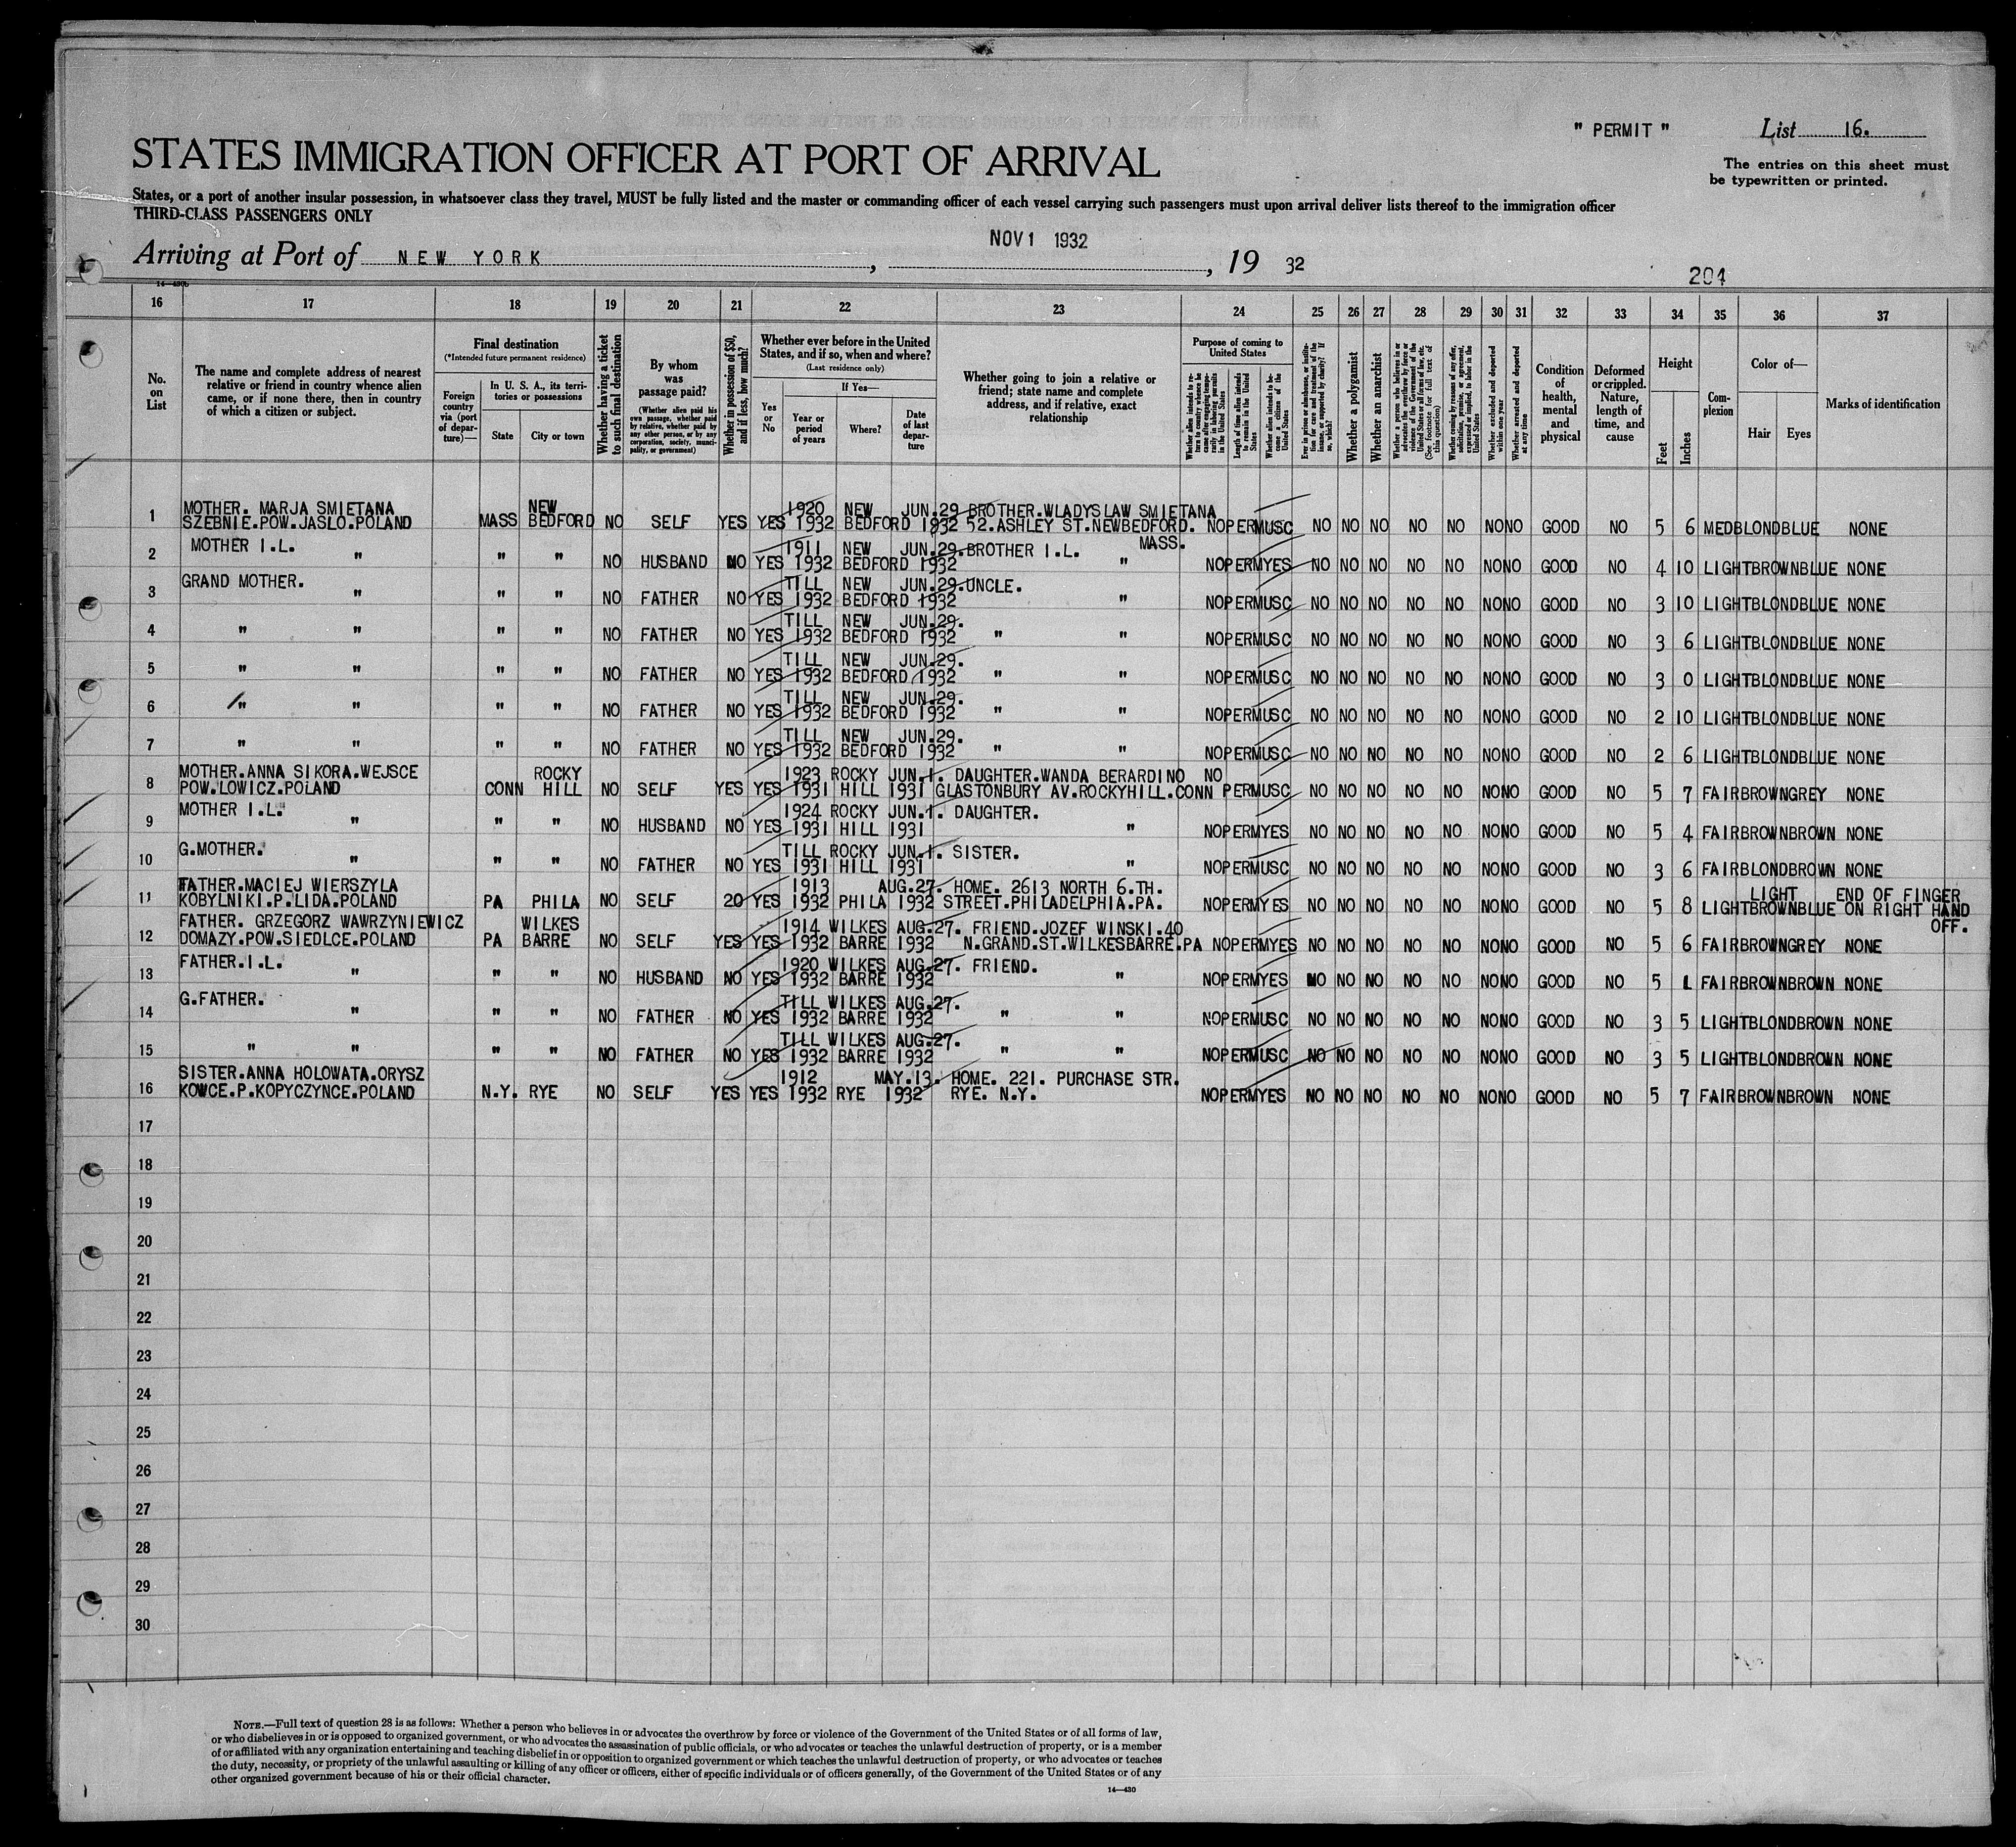 " PERMIT "
List 16.
STATES IMMIGRATION OFFICER AT PORT OF ARRIVAL
The entries on this sheet must
be typewritten or printed.
States, or a port of another insular possession, in whatsoever class they travel, MUST be fully listed and the master or commanding officer of each vessel carrying such passengers must upon arrival deliver lists thereof to the immigration officer
THIRD-CLASS PASSENGERS ONLY
Arriving at Port of NEW YORK, NOV 1 1932, 19 32
204
16 17 18 19 20 21 22 23 24 25 26 27 28 29 30 31 32 33 34 35 36 37
No. on List
The name and complete address of nearest relative or friend in country whence alien came, or if none there, then in country of which a citizen or subject.
Final destination
(*Intended future permanent residence)
Foreign country via (port of departure)—
In U. S. A., its territories or possessions
State
City or town
Whether having a ticket to such final destination
By whom was passage paid?
(Whether alien paid his own passage, whether paid by relative, whether paid by any other person, or by any corporation, society, municipality, or government)
Whether in possession of $50, and if less, how much?
Whether ever before in the United States, and if so, when and where?
(Last residence only)
Yes or No
If Yes—
Year or period of years
Where?
Date of last departure
Whether going to join a relative or friend; state name and complete address, and if relative, exact relationship
Purpose of coming to United States
Whether alien intends to return to country whence he came after engaging temporarily in laboring pursuits in the United States
Length of time alien intends to remain in the United States
Whether alien intends to become a citizen of the United States
Ever in prison or almshouse, or institution for care and treatment of the insane, or supported by charity? If so, which?
Whether a polygamist
Whether an anarchist
Whether a person who believes in or advocates the overthrow by force or violence of the Government of the United States or all forms of law, etc. (See footnote for full text of this question)
Whether coming by reasons of any offer, solicitation, promise, or agreement, expressed or implied, to labor in the United States
Whether excluded and deported within one year
Whether arrested and deported at any time
Condition of health, mental and physical
Deformed or crippled. Nature, length of time, and cause
Height
Feet
Inches
Complexion
Color of—
Hair
Eyes
Marks of identification
1 MOTHER. MARJA SMIETANA SZEBNIE.POW.JASLO.POLAND MASS NEW BEDFORD NO SELF YES YES 1920 1932 NEW BEDFORD JUN.29 1932 BROTHER.WLADYSLAW SMIETANA 52.ASHLEY ST.NEWBEDFORD. MASS. NO PERM USC NO NO NO NO NO NO NO GOOD NO 5 6 MED BLOND BLUE NONE
2 MOTHER I.L. " " " NO HUSBAND NO YES 1911 1932 NEW BEDFORD JUN.29. 1932 BROTHER I.L. " NO PERM YES NO NO NO NO NO NO NO GOOD NO 4 10 LIGHT BROWN BLUE NONE
3 GRAND MOTHER. " " " NO FATHER NO YES TILL 1932 NEW BEDFORD JUN.29. 1932 UNCLE. " NO PERM USC NO NO NO NO NO NO NO GOOD NO 3 10 LIGHT BLOND BLUE NONE
4 " " " " NO FATHER NO YES TILL 1932 NEW BEDFORD JUN.29. 1932 " " NO PERM USC NO NO NO NO NO NO NO GOOD NO 3 6 LIGHT BLOND BLUE NONE
5 " " " " NO FATHER NO YES TILL 1932 NEW BEDFORD JUN.29. 1932 " " NO PERM USC NO NO NO NO NO NO NO GOOD NO 3 0 LIGHT BLOND BLUE NONE
6 " " " " NO FATHER NO YES TILL 1932 NEW BEDFORD JUN.29. 1932 " " NO PERM USC NO NO NO NO NO NO NO GOOD NO 2 10 LIGHT BLOND BLUE NONE
7 " " " " NO FATHER NO YES TILL 1932 NEW BEDFORD JUN.29. 1932 " " NO PERM USC NO NO NO NO NO NO NO GOOD NO 2 6 LIGHT BLOND BLUE NONE
8 MOTHER.ANNA SIKORA.WEJSCE POW.LOWICZ.POLAND CONN ROCKY HILL NO SELF YES YES 1923 1931 ROCKY HILL JUN.1. 1931 DAUGHTER.WANDA BERARDINO GLASTONBURY AV.ROCKYHILL.CONN NO PERM USC NO NO NO NO NO NO NO GOOD NO 5 7 FAIR BROWN GREY NONE
9 MOTHER I.L. " " " NO HUSBAND NO YES 1924 1931 ROCKY HILL JUN.1. 1931 DAUGHTER. " NO PERM YES NO NO NO NO NO NO NO GOOD NO 5 4 FAIR BROWN BROWN NONE
10 G.MOTHER. " " " NO FATHER NO YES TILL 1931 ROCKY HILL JUN.1. 1931 SISTER. " NO PERM USC NO NO NO NO NO NO NO GOOD NO 3 6 FAIR BLOND BROWN NONE
11 FATHER.MACIEJ WIERSZYLA KOBYLNIKI.P.LIDA.POLAND PA PHILA NO SELF 20 YES 1913 1932 PHILA AUG.27. 1932 HOME. 2613 NORTH 6.TH. STREET.PHILADELPHIA.PA. NO PERM YES NO NO NO NO NO NO NO GOOD NO 5 8 LIGHT LIGHT BROWN BLUE END OF FINGER ON RIGHT HAND OFF.
12 FATHER. GRZEGORZ WAWRZYNIEWICZ DOMAZY.POW.SIEDLCE.POLAND PA WILKES BARRE NO SELF YES YES 1914 1932 WILKES BARRE AUG.27. 1932 FRIEND.JOZEF WINSKI.40 N.GRAND.ST.WILKESBARRE.PA NO PERM YES NO NO NO NO NO NO NO GOOD NO 5 6 FAIR BROWN GREY NONE
13 FATHER.I.L. " " " NO HUSBAND NO YES 1920 1932 WILKES BARRE AUG.27. 1932 FRIEND. " NO PERM YES NO NO NO NO NO NO NO GOOD NO 5 1 FAIR BROWN BROWN NONE
14 G.FATHER. " " " NO FATHER NO YES TILL 1932 WILKES BARRE AUG.27. 1932 " " NO PERM USC NO NO NO NO NO NO NO GOOD NO 3 5 LIGHT BLOND BROWN NONE
15 " " " " NO FATHER NO YES TILL 1932 WILKES BARRE AUG.27. 1932 " " NO PERM USC NO NO NO NO NO NO NO GOOD NO 3 5 LIGHT BLOND BROWN NONE
16 SISTER.ANNA HOLOWATA.ORYSZ KOWCE.P.KOPYCZYNCE.POLAND N.Y. RYE NO SELF YES YES 1912 1932 RYE MAY.13. 1932 HOME. 221. PURCHASE STR. RYE. N.Y. NO PERM YES NO NO NO NO NO NO NO GOOD NO 5 7 FAIR BROWN BROWN NONE
17
18
19
20
21
22
23
24
25
26
27
28
29
30
NOTE.—Full text of question 28 is as follows: Whether a person who believes in or advocates the overthrow by force or violence of the Government of the United States or of all forms of law,
or who disbelieves in or is opposed to organized government, or who advocates the assassination of public officials, or who advocates or teaches the unlawful destruction of property, or is a member
of or affiliated with any organization entertaining and teaching disbelief in or opposition to organized government or which teaches the unlawful destruction of property, or who advocates or teaches
the duty, necessity, or propriety of the unlawful assaulting or killing of any officer or officers, either of specific individuals or of officers generally, of the Government of the United States or of any
other organized government because of his or their official character.
14—430